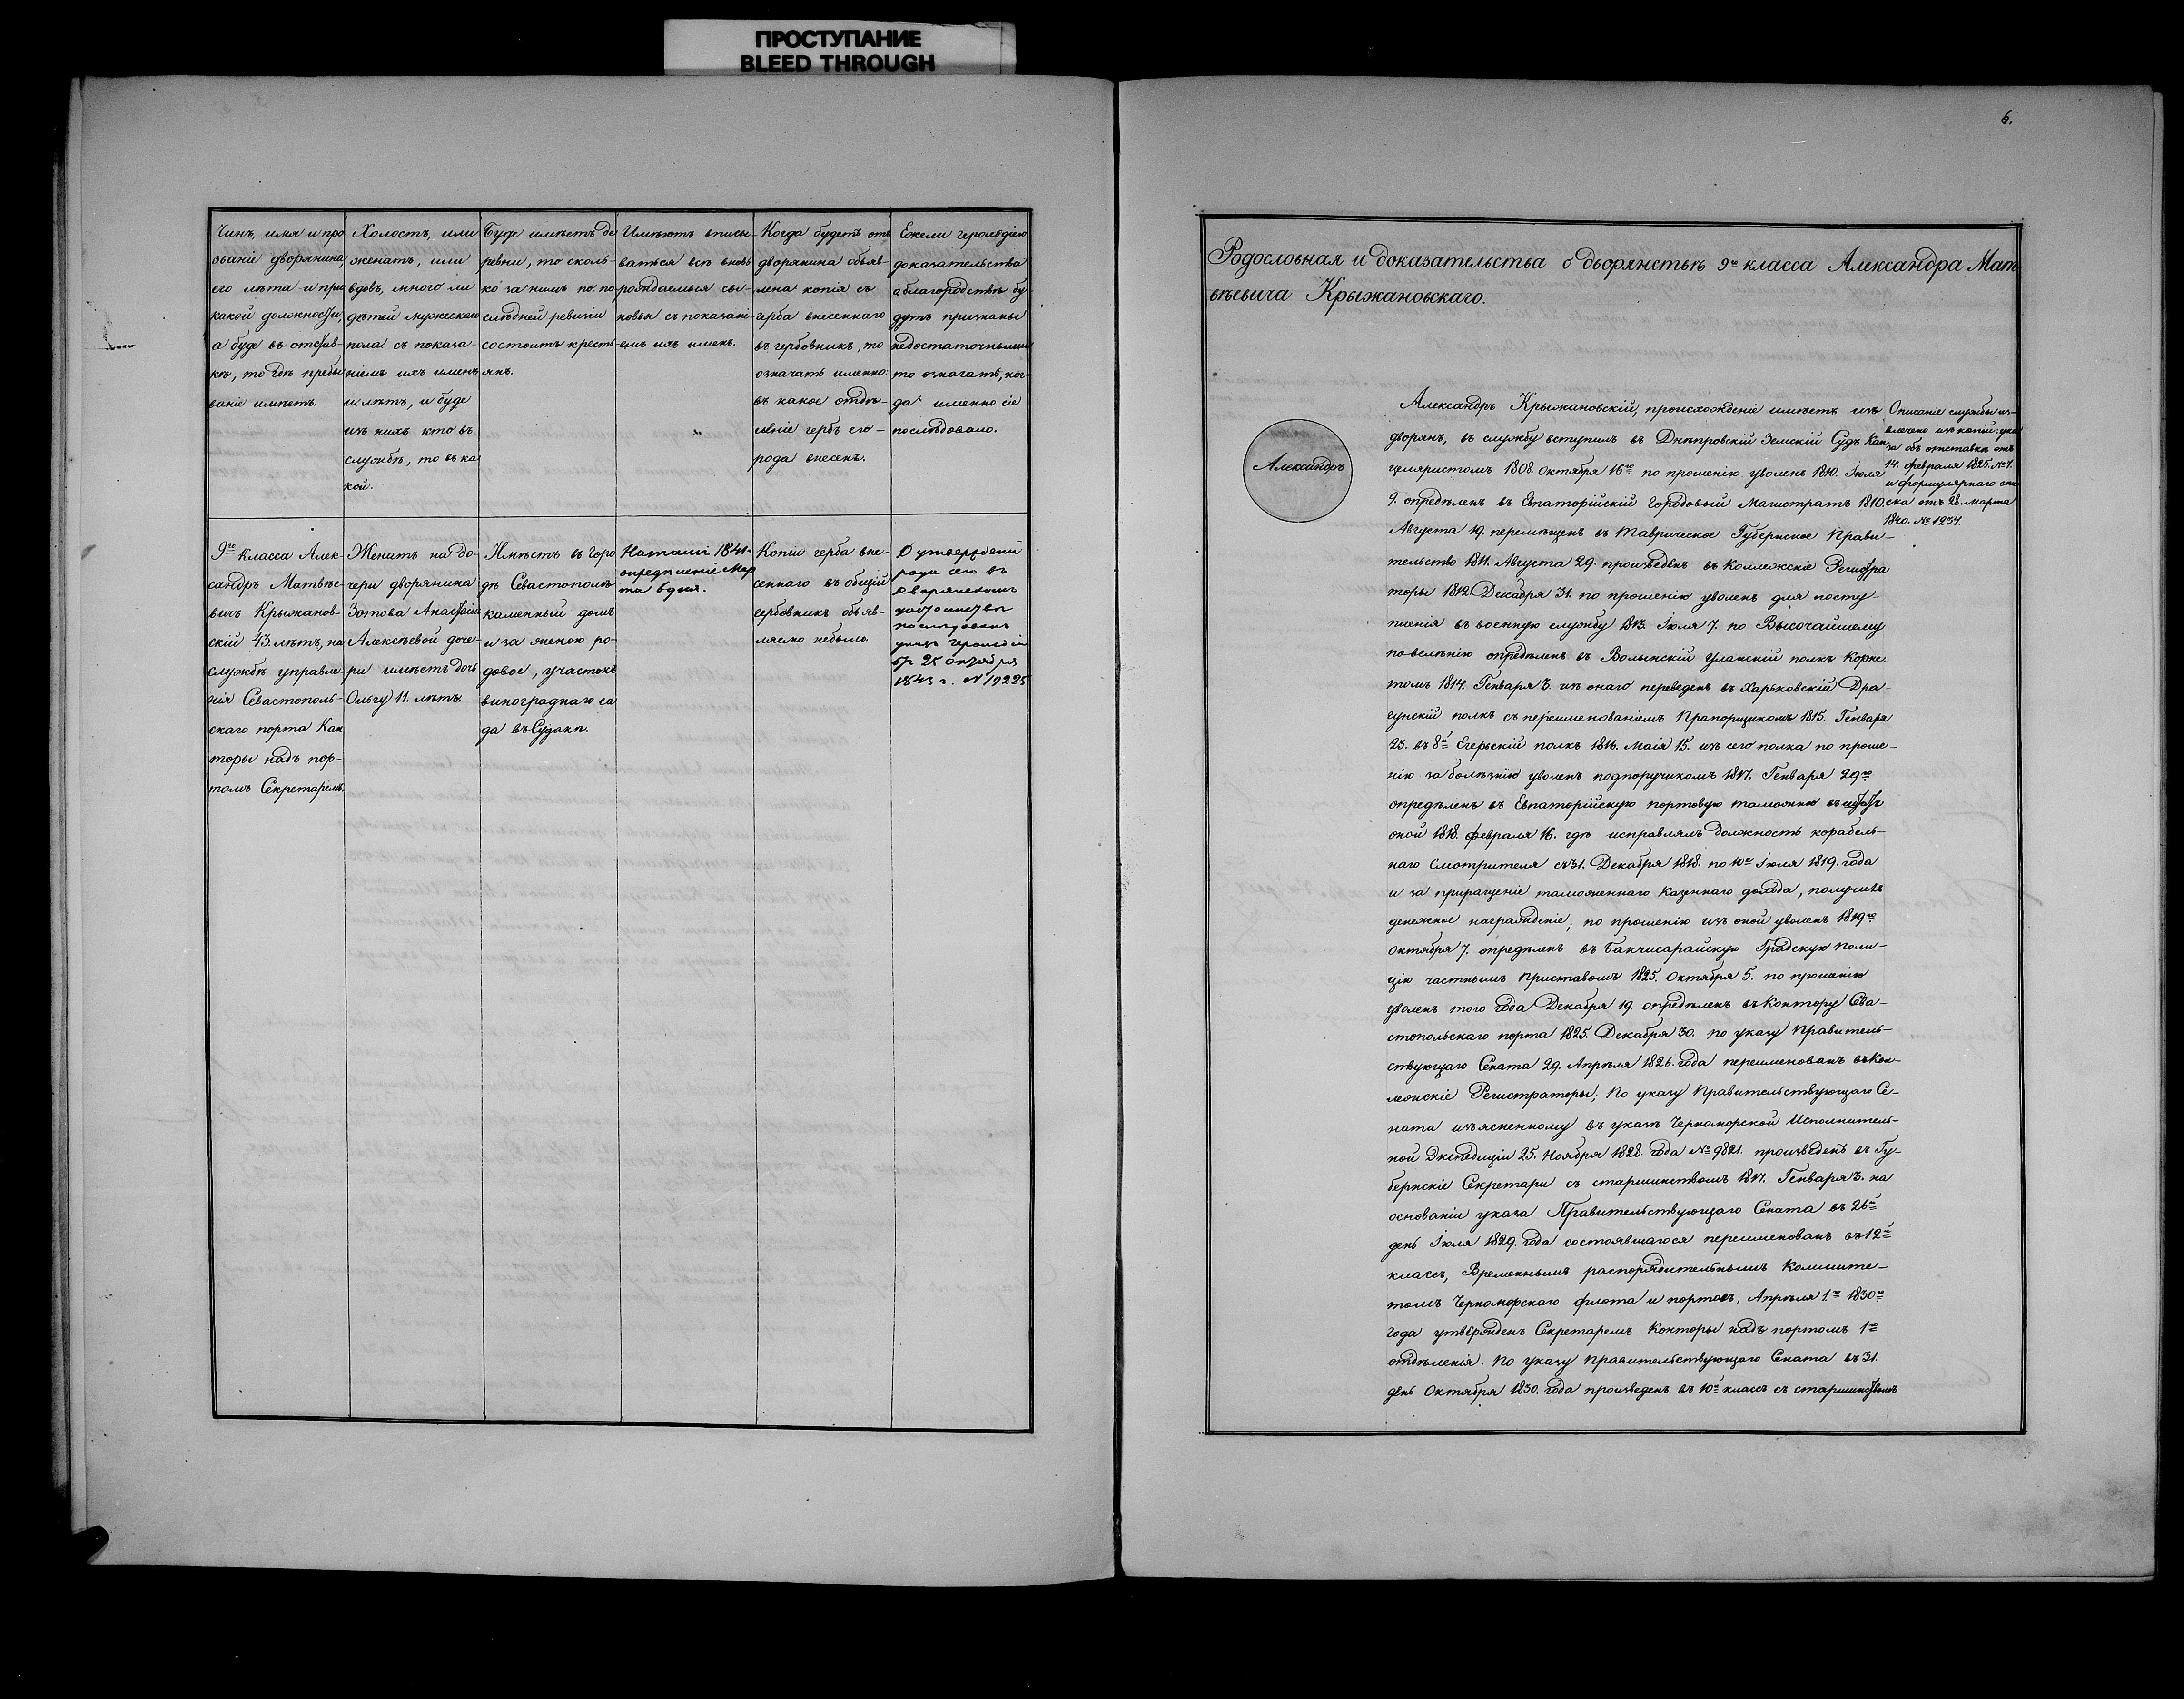 ПРОСТУПАНИЕ
BLEED THROUGH
Чинъ, имя и про
званіе дворянина,
его лѣта и при
какой должности,
а буде въ отстав-
кѣ, то гдѣ пребы
ваніе имѣетъ.
Холостъ, или
женатъ, или
вдовъ, много ли
дѣтей мужескаго
пола съ показа-
ніемъ ихъ именъ
и лѣтъ, и буде
изъ нихъ кто въ
службѣ, то въ ка
кой.
Буде имѣетъ де
ревни, то сколь-
ко за нимъ по по
слѣдней ревизіи
состоитъ кресть
янъ.
Имѣютъ вписы-
ваться всѣ вновь
рождаемыя сы-
новья съ показані
емъ ихъ именъ.
Когда будетъ отъ
дворянина объяв-
лена копія съ
герба внесеннаго
въ гербовникъ, то
означать именно:
въ какое отдѣ-
леніе гербъ его
рода внесенъ.
Ежели герольдіею
доказательства
о благородствѣ бу-
дутъ признаны
недостаточными
то означать, ког-
да именно сіе
послѣдовало.
9го класса Алек-
сандръ Матвѣе-
вичъ Крыжанов-
скій 43. лѣтъ, на
службѣ управле-
нія Севастополь-
скаго порта Кон
торы надъ пор-
томъ Секретаремъ.
Женатъ на до-
чери дворянина
Зотова Анастасіи
Алексѣевой доче-
ри имѣетъ дочь
Ольгу 11. лѣтъ.
Имѣетъ въ горо
дѣ Севастополѣ
каменный домъ
и за женою ро-
довое, участокъ
винограднаго са
да въ Судакѣ.
Наталій 1841.
опредѣленіе Мар
та 6 дня.
Копіи герба вне-
сеннаго въ общій
гербовникъ объяв-
ляемо небыло.
О утвержденіи
рода сего въ
дворянскомъ
достоинствѣ
послѣдовалъ
указъ Герольдіи
отъ 25 октября
1843 г. N 19225
6.
Родословная и доказательства о дворянствѣ 9го класса Александра Мат
вѣевича Крыжановскаго.
Александръ
Александръ Крыжановскій, происхожденіе имѣетъ изъ
дворянъ, въ службу вступилъ въ Днѣпровскій Земскій Судъ Кан-
целяристомъ 1808. Октября 16го по прошенію уволенъ 1810. Іюля
9. опредѣленъ въ Евпаторійскій Городовый Магистратъ 1810.
Августа 19. перемѣщенъ въ Таврическое Губернское Прави-
тельство 1811. Августа 29. произведенъ въ Коллежскіе Регистра
торы 1812 Декабря 31. по прошенію уволенъ для посту-
пленія въ военную службу 1813. Іюля 7. по Высочайшему
повелѣнію опредѣленъ въ Волынскій Уланскій полкъ Корне
томъ 1814. Генваря 3. изъ онаго переведенъ въ Харьковскій Дра-
гунскій полкъ съ переименованіемъ Прапорщикомъ 1815. Генваря
23. въ 8й Егерьскій полкъ 1816. Маія 15. изъ сего полка по проше-
нію за болѣзнію уволенъ подпоручикомъ 1817. Генваря 29го
опредѣленъ въ Евпаторійскую портовую таможню въ штатъ
оной 1818. февраля 16. гдѣ исправлялъ должность корабель-
наго Смотрителя съ 31. Декабря 1818. по 10е Іюля 1819. года
и за приращеніе таможеннаго казеннаго дохода, получилъ
денежное награжденіе; по прошенію изъ оной уволенъ 1819го
Октября 7. опредѣленъ въ Бакчисарайскую Градскую поли-
цію частнымъ Приставомъ 1825. Октября 5. по прошенію
уволенъ того года Декабря 19. опредѣленъ въ Контору Сева-
стопольскаго порта 1825. Декабря 30. по указу Правитель-
ствующаго Сената 29. Апрѣля 1826. года переименованъ въ Кол-
лежскіе Регистраторы; По указу Правительствующаго Се-
ната изъясненному въ указѣ Черноморской Исполнитель-
ной Экспедиціи 25. Ноября 1828. года № 9821. произведенъ въ Гу-
бернскіе Секретари съ старшинствомъ 1817. Генваря 3. на
основаніи указа Правительствующаго Сената въ 26й
день Іюля 1829. года состоявшагося переименованъ въ 12й
классъ, Временнымъ распорядительнымъ Комите-
томъ Черноморскаго флота и портовъ, Апрѣля 1го 1830го
года утвержденъ Секретаремъ Конторы надъ портомъ 1го
отдѣленія. По указу Правительствующаго Сената въ 31.
день Октября 1830. года произведенъ въ 10й классъ съ старшинствомъ
Описаніе службы из-
влечено изъ копій: ука
за объ отставкѣ отъ
14. февраля 1825. №7.
и формулярнаго спи
ска отъ 28. марта
1840. № 1234.